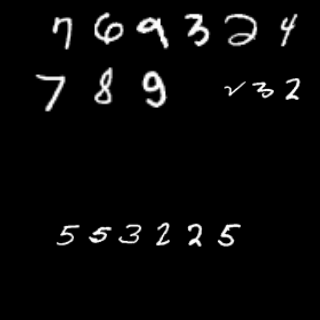 769324
789 232
553225